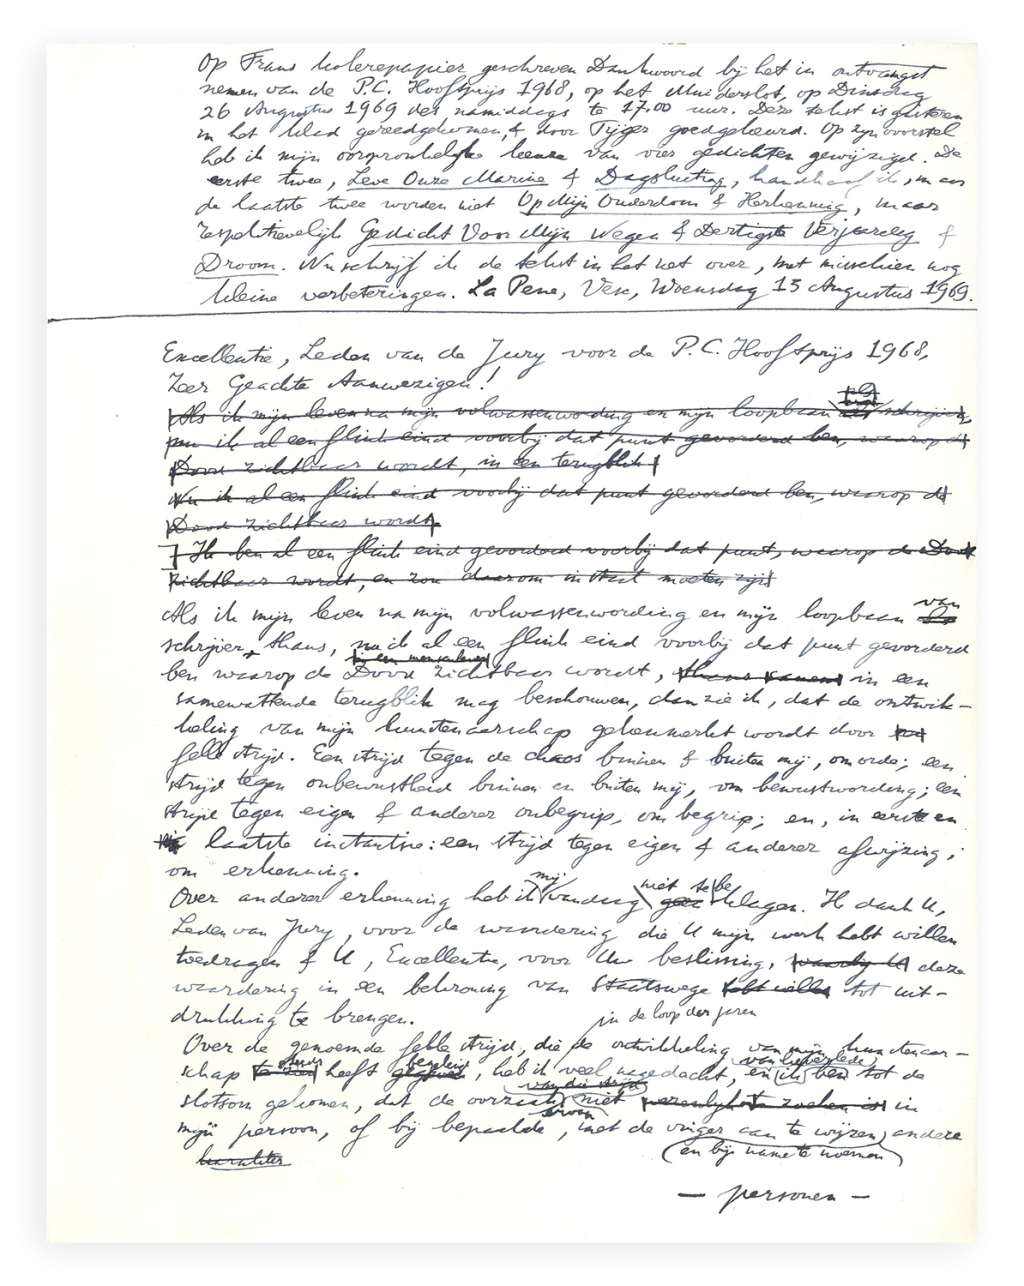 Op Frans kolerepapier geschreven Dankwoord bij het in ontvangst
nemen van de P.C. Hooftprijs 1968, op het Muiderslot, op Dinsdag
26 Augustus 1969 des namiddags te 17.00 uur. Deze tekst is gisteren
in het klad gereedgekomen, & door Tijger goedgekeurd. Op zijn voorstel
heb ik mijn oorspronkelijke keuze van vier gedichten gewijzigd. De
eerste twee, Leve Onze Marine & Dagsluiting, handhaaf ik, maar
de laatste twee worden niet Op Mijn Ouderdom & Herkenning, maar
respektievelijk Gedicht Voor Mijn Wegen & Dertigste Verjaardag &
Droom. Nu schrijf ik de tekst in het net over, met misschien nog
kleine verbeteringen. La Pene, Ven, Woensdag 13 Augustus 1969.
Excellentie, Leden van de Jury voor de P.C. Hooftprijs 1968,
Zeer Geachte Aanwezigen!
Als ik mijn leven na mijn volwassenwording en mijn loopbaan als schrijver,
nu ik al een flink eind voorbij dat punt gevorderd ben, waarop de
Dood zichtbaar wordt, in een terugblik
Nu ik al een flink eind voorbij dat punt gevorderd ben, waarop de
Dood zichtbaar wordt
Ik ben al een flink eind gevorderd voorbij dat punt, waarop de Dood
zichtbaar wordt, en zou daarom in staat moeten zijn
Als ik mijn leven na mijn volwassenwording en mijn loopbaan van
schrijver thans, nu ik al een flink eind voorbij dat punt gevorderd
ben waarop de Dood zichtbaar wordt, in een
samenvattende terugblik mag beschouwen, dan zie ik, dat de ontwik-
keling van mijn kunstenaarschap gekenmerkt wordt door
felle strijd. Een strijd tegen de chaos binnen & buiten mij, om orde; een
strijd tegen onbewustheid binnen en buiten mij, om bewustwording; een
strijd tegen eigen & anderer onbegrip, om begrip; en, in eerste en
laatste instantie: een strijd tegen eigen & anderer afwijzing,
om erkenning.
Over anderer erkenning heb ik mij vandaag niet te beklagen. Ik dank U,
Leden van Jury, voor de waardering die U mijn werk hebt willen
toedragen & U, Excellentie, voor Uw beslissing, waarbij U deze
waardering in een bekroning van Staatswege hebt willen tot uit-
drukking te brengen.
in de loop der jaren
Over de genoemde felle strijd, die de ontwikkeling van mijn kunstenaar-
schap steeds heeft begeleid, heb ik veel nagedacht, en ik ben van lieverlede tot de
slotsom gekomen, dat de oorzaak van die strijd ervan niet in
mijn persoon, of bij bepaalde, met de vinger aan te wijzen, andere
(en bij name te noemen)
karakter
— personen —